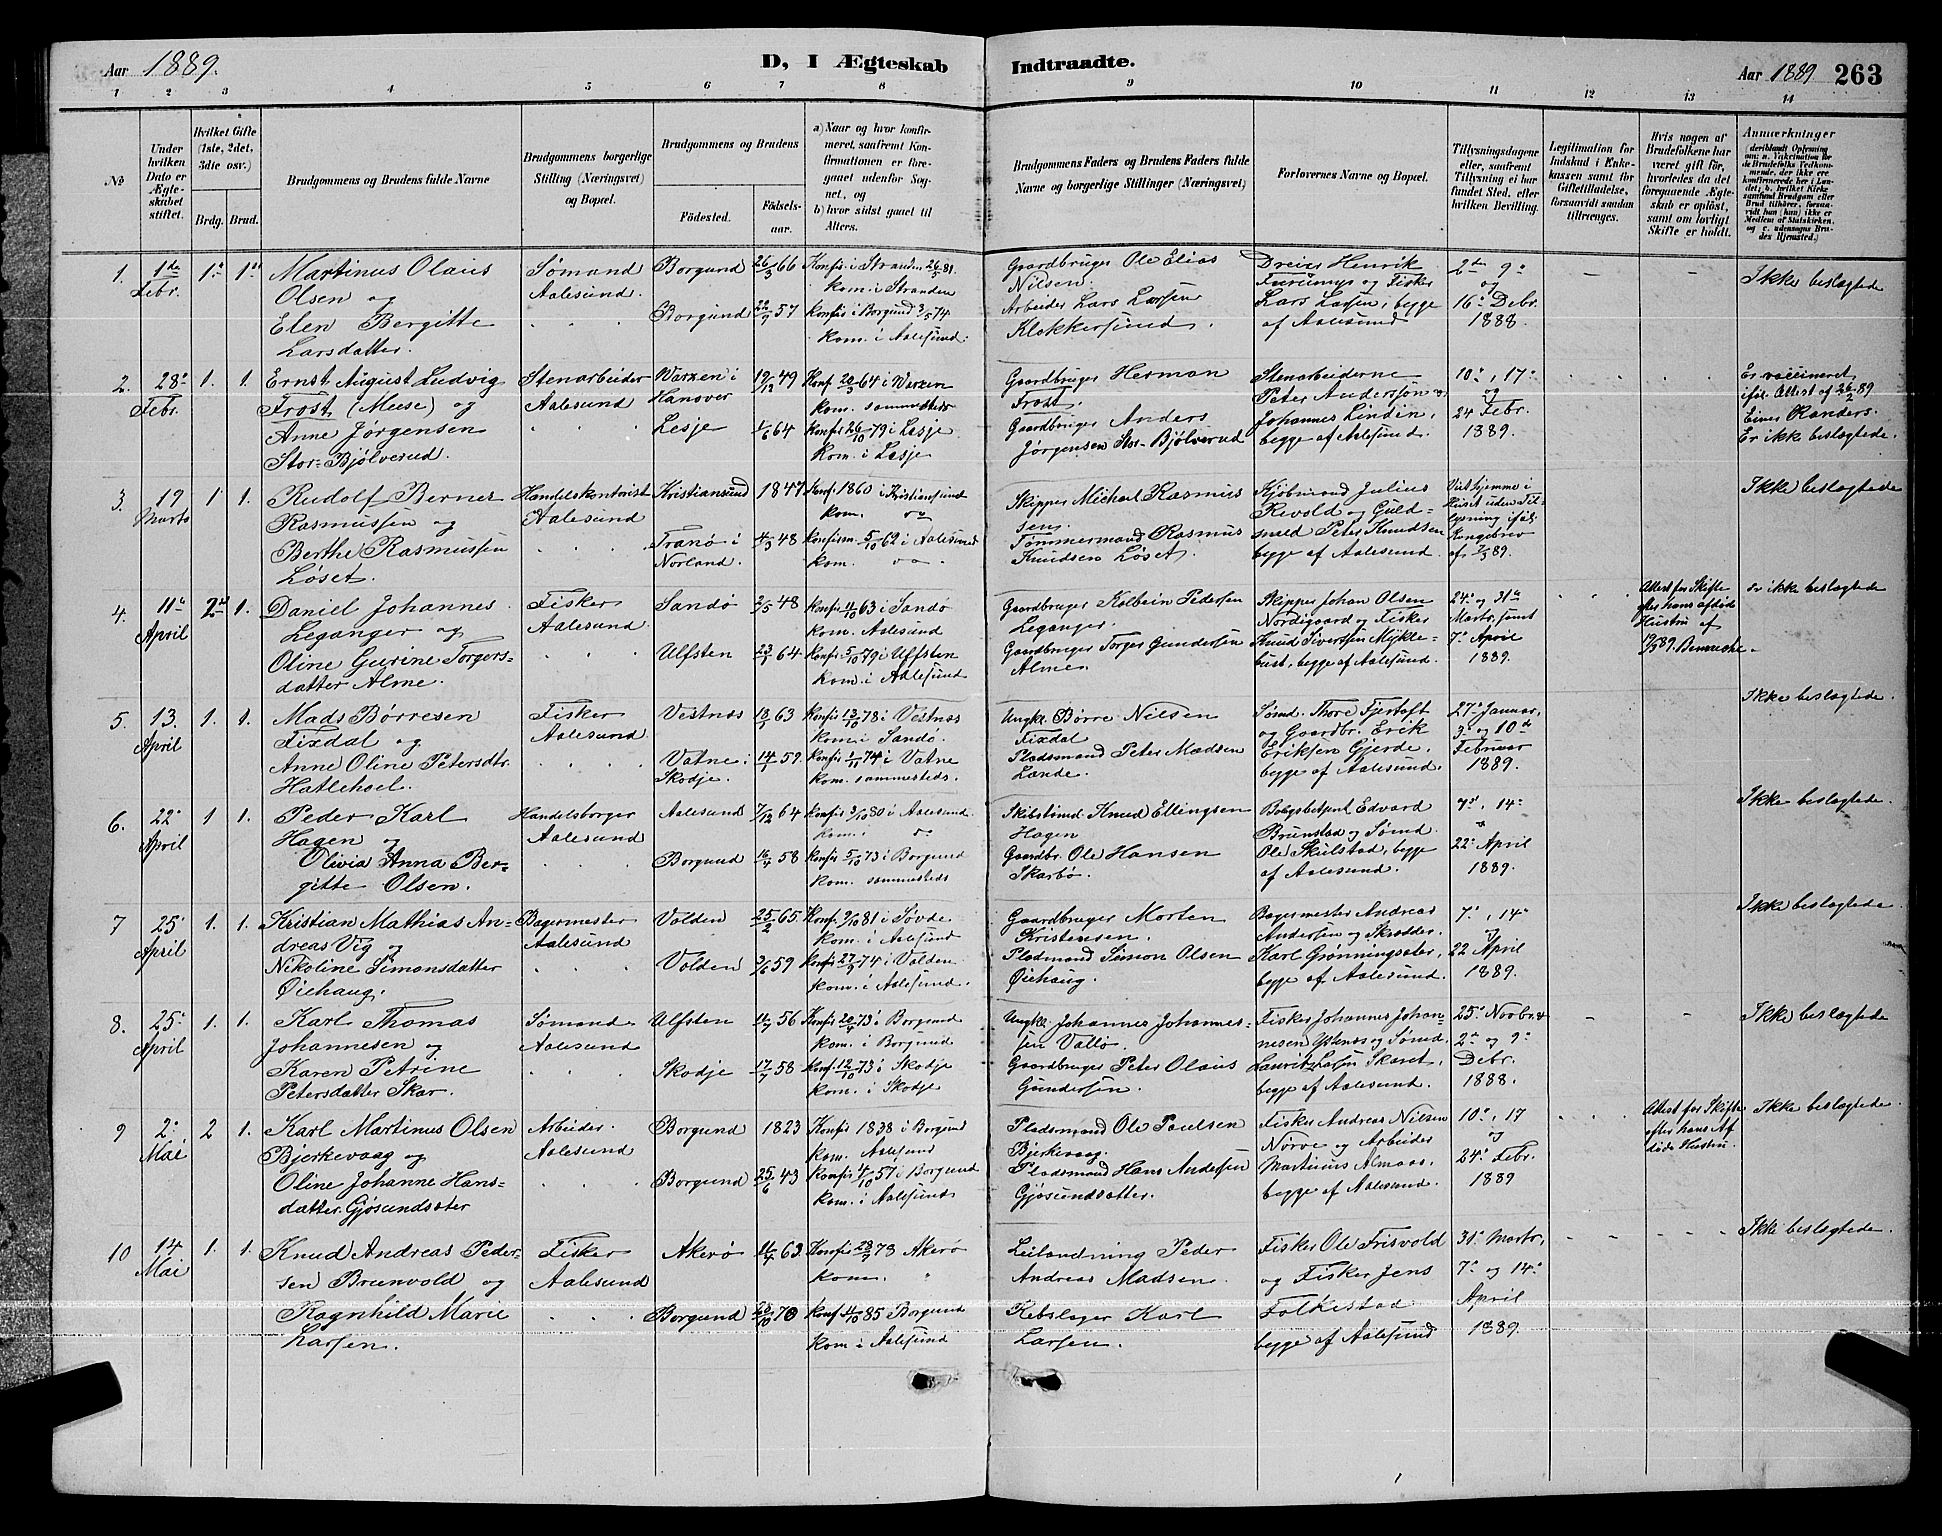 Aar 1889.
D, I Ægteskab Indtraadte.
Aar 1889 263
1 2 3 4 5 6 7 8 9 10 11 12 13 14
No
Under hvilken Dato er Ægteskabet stiftet.
Hvilket Gifte (1ste, 2det, 3die osv.)
Brdg. Brud.
Brudgommens og Brudens fulde Navne
Brudgommens borgerlige Stilling (Næringsvei) og Bopæl.
Brudgommens og Brudens
Födested.
Födselsaar.
a) Naar og hvor konfirmeret, saafremt Konfirmationen er foregaaet udenfor Sognet, og
b) hvor sidst gaaet til Alters.
Brudgommens Faders og Brudens Faders fulde Navne og borgerlige Stillinger (Næringsvei)
Forlovernes Navne og Bopæl.
Tillysningsdagene eller, saafremt Tillysning ei har fundet Sted, efter hvilken Bevilling.
Legitimation for Indskud i Enkekassen samt for Giftetilladelse, forsaavidt saadan tiltrænges.
Hvis nogen af Brudefolkene har været gift för, hvorledes da det foregaaende Ægteskab er oplöst, samt om lovligt Skifte er holdt.
Anmærkninger
1. 1ste Febr. 1. 1.
Martinus Olaus
Olsen og
Elen Bergitte
Larsdatter.
Sømand
Aalesund.
Borgund 26/5 66
Borgund 22/9 57
Konfis. i Stranden 26/5 81
kom. i Stranden
Konfis i Borgund 3/5 74
kom. i Aalesund.
Gaardbruger Ole Elias
Nilsen.
Arbeider Lars Larsen
Klokkersund.
Dreier Henrik
Furunes og Fisker
Lars Larsen, begge
af Aalesund
2den 9de
og
16de Debr.
1888.
Ikke beslægtede
2. 28de Febr. 1. 1.
Ernst August Ludvig
Frost (Meese) og
Anne Jørgensen
Stor-Bjølverud.
Stenarbeider
Aalesund
Warzen i
Hanover 19/12 49
Lesje 1/6 64
Konf. 20/3 64 i Warzen
kom. sammesteds
Konfis 26/10 79 i Lesje
Kom. i Lesje
Gaardbruger Herman
Frost.
Gaardbruger Anders
Jørgensen Stor-Bjölverud
Stenarbeiderne
Peter Andersson og
Johannes Lindin,
begge af Aalesund.
10de, 17de
og
24 Febr.
1889.
Er vaccineret
ifør. Attest af 26/2 89
Einer Randers.
Er ikke beslægtede.
3. 19 Marts 1 1.
Rudolf Berner
Rasmussen og
Berthe Rasmussen
Løset.
Handelskontorist
Aalesund
Kristiansund 1847
Tranø i
Norland. 4/3 48
Konf. 1860 i Kristiansund
kom. do
Konfirm. 5/10 62 i Aalesund
kom. do.
Skipper Michael Rasmussen.
Tømmermand Rasmus
Knudsen Løset.
Kjøbmand Julius
Revold og Guldsmed Peter Knudsen
begge af Aalesund.
Viet hjemme i
Huset uden Tillysning iføl.
Kongebrev
Ikke beslægtede
4. 11te April 2det 1.
Daniel Johannes
Leganger og
Oline Gurine Torgersdatter Alme.
Fisker
Aalesund.
Sandø 2/5 48
Ulfsten 23/1 64
Konfis 11/10 63 i Sandø
kom. Aalesund
Konfis 5/10 79 i Ulfsten
kom. i Aalesund
Gaardbruger Kolbein Pedersen
Leganger.
Gaardbruger Torger Gundersen
Alme.
Skipper Johan Olsen
Nordigaard og Fisker
Knud Siversen Myklebust, begge af Aalesund.
24de og 31te
Marts samt
7de April
1889.
Attest for Skifte
efter hans afdøde
Hustru af
Er ikke beslægtede
5. 13. April 1. 1.
Mads Børresen
Fixdal og
Anne Oline Petersdtr.
Hatlehoel.
Fisker
Aalesund.
Vestnæs 18/1 63
Vatne i
Skodje. 14/1 59.
Konfis 13/10 78 i Vestnæs
kom. i Sandø.
Konfis 1/11 74 i Vatne
kom. sammesteds.
Ungkl. Börre Nilsen
Fixdal
Pladsmand Peter Madsen
Lande.
Sømd. Thore Fjertoft
og Gaardbr. Erik
Eriksen Gjerde,
begge af Aalesund.
27de Januar,
3de og 10de
Februar
1889.
Ikke beslægtede.
6. 22de April 1 1.
Peder Karl
Hagen og
Olivia Anna Bergitte Olsen.
Handelsborger
Aalesund
Aalesund 7/12 64
Borgund 16/4 58
Konfis 3/10 80 i Aalesund
kom. i do
Konfis 5/10 73 i Borgund
kom. sammesteds
Skibstmd. Knud Ellingsen
Hagen
Gaardbr. Ole Hansen
Skarbø.
Brunstad og Sømd.
Ole Skulstad, begge
af Aalesund.
7de, 14de
22de April
1889.
Ikke beslægtede.
7 25de April 1. 1.
Kristian Mathias Andreas Vig og
Nikoline Simonsdatter
Øiehaug.
Bagermester
Aalesund
Volden 25/2 65
Volden 3/6 59
Konf. 9/10 81 i Søvde
kom. i Aalesund
Konfis 27/9 74 i Volden
kom. i Aalesund.
Gaardbruger Morten
Kristensen.
Pladsmand Simon Olsen
Øiehaug.
Bagermester Andreas
Andersen og Skrædder
Karl Grønningsæter,
begge af Aalesund.
7de, 14de
og
22 April
1889.
Ikke beslægtede.
8. 25de April 1. 1.
Karl Thomas
Johannesen og
Karen Petrine
Petersdatter Skar.
Sømand
Aalesund
Ulfsten 11/7 56
Skodje 17/7 58
Konfis 20/4 73 i Borgund
kom. i Borgund
Konf. 12/10 73 i Skodje
kom. i Skodje
Ungkl. Johannes Johannessen Vallø.
Gaardbruger Peter Olaus
Gundersen.
Fisker Johannes Johannesen Ystenes og Sømd.
Laurits Larsen Skaret,
begge af Aalesund.
25de Novbr. &
2den og 9de
Debr.
1888.
Ikke beslægtede
9 2den Mai 2 1.
Karl Martinus Olsen
Bjerkevaag og
Oline Johanne Hansdatter Gjøsundsæter
Arbeider
Aalesund
Borgund 1823
Borgund 25/6 43
Konfis 1838 i Borgund
kom. Aalesund
Konfis 4/10 57 i Borgund
kom. i Aalesund
Pladsmand Ole Paulsen
Bjerkevaag.
Pladsmand Hans Andersen
Gjøsundsætter.
Fisker Andreas Nilsen
Nørve og Arbeider
Martinus Almaas,
begge af Aalesund.
10de, 17
og
24de Febr.
1889
Attest for Skifte
efter hans Afdøde Hustru.
Ikke beslægtede
10 14 Mai 1. 1.
Knud Andreas Pedersen Brunvold og
Ragnhild Marie
Larsen.
Fisker
Aalesund
Akerø 11/7 63.
Borgund 23/10 70
Konfis 28/9 78 Akerø
kom. "
Konf. 4/10 85 Borgund
kom i Aalesund
Leilænding Peder
Andreas Madsen.
Rebslager Karl
Larsen.
Fisker Ole Frisvold
og Fisker Jens
Folkestad
begge af Aalesund
31te Marts,
7de og 14de
April
1889.
Ikke beslægtede.